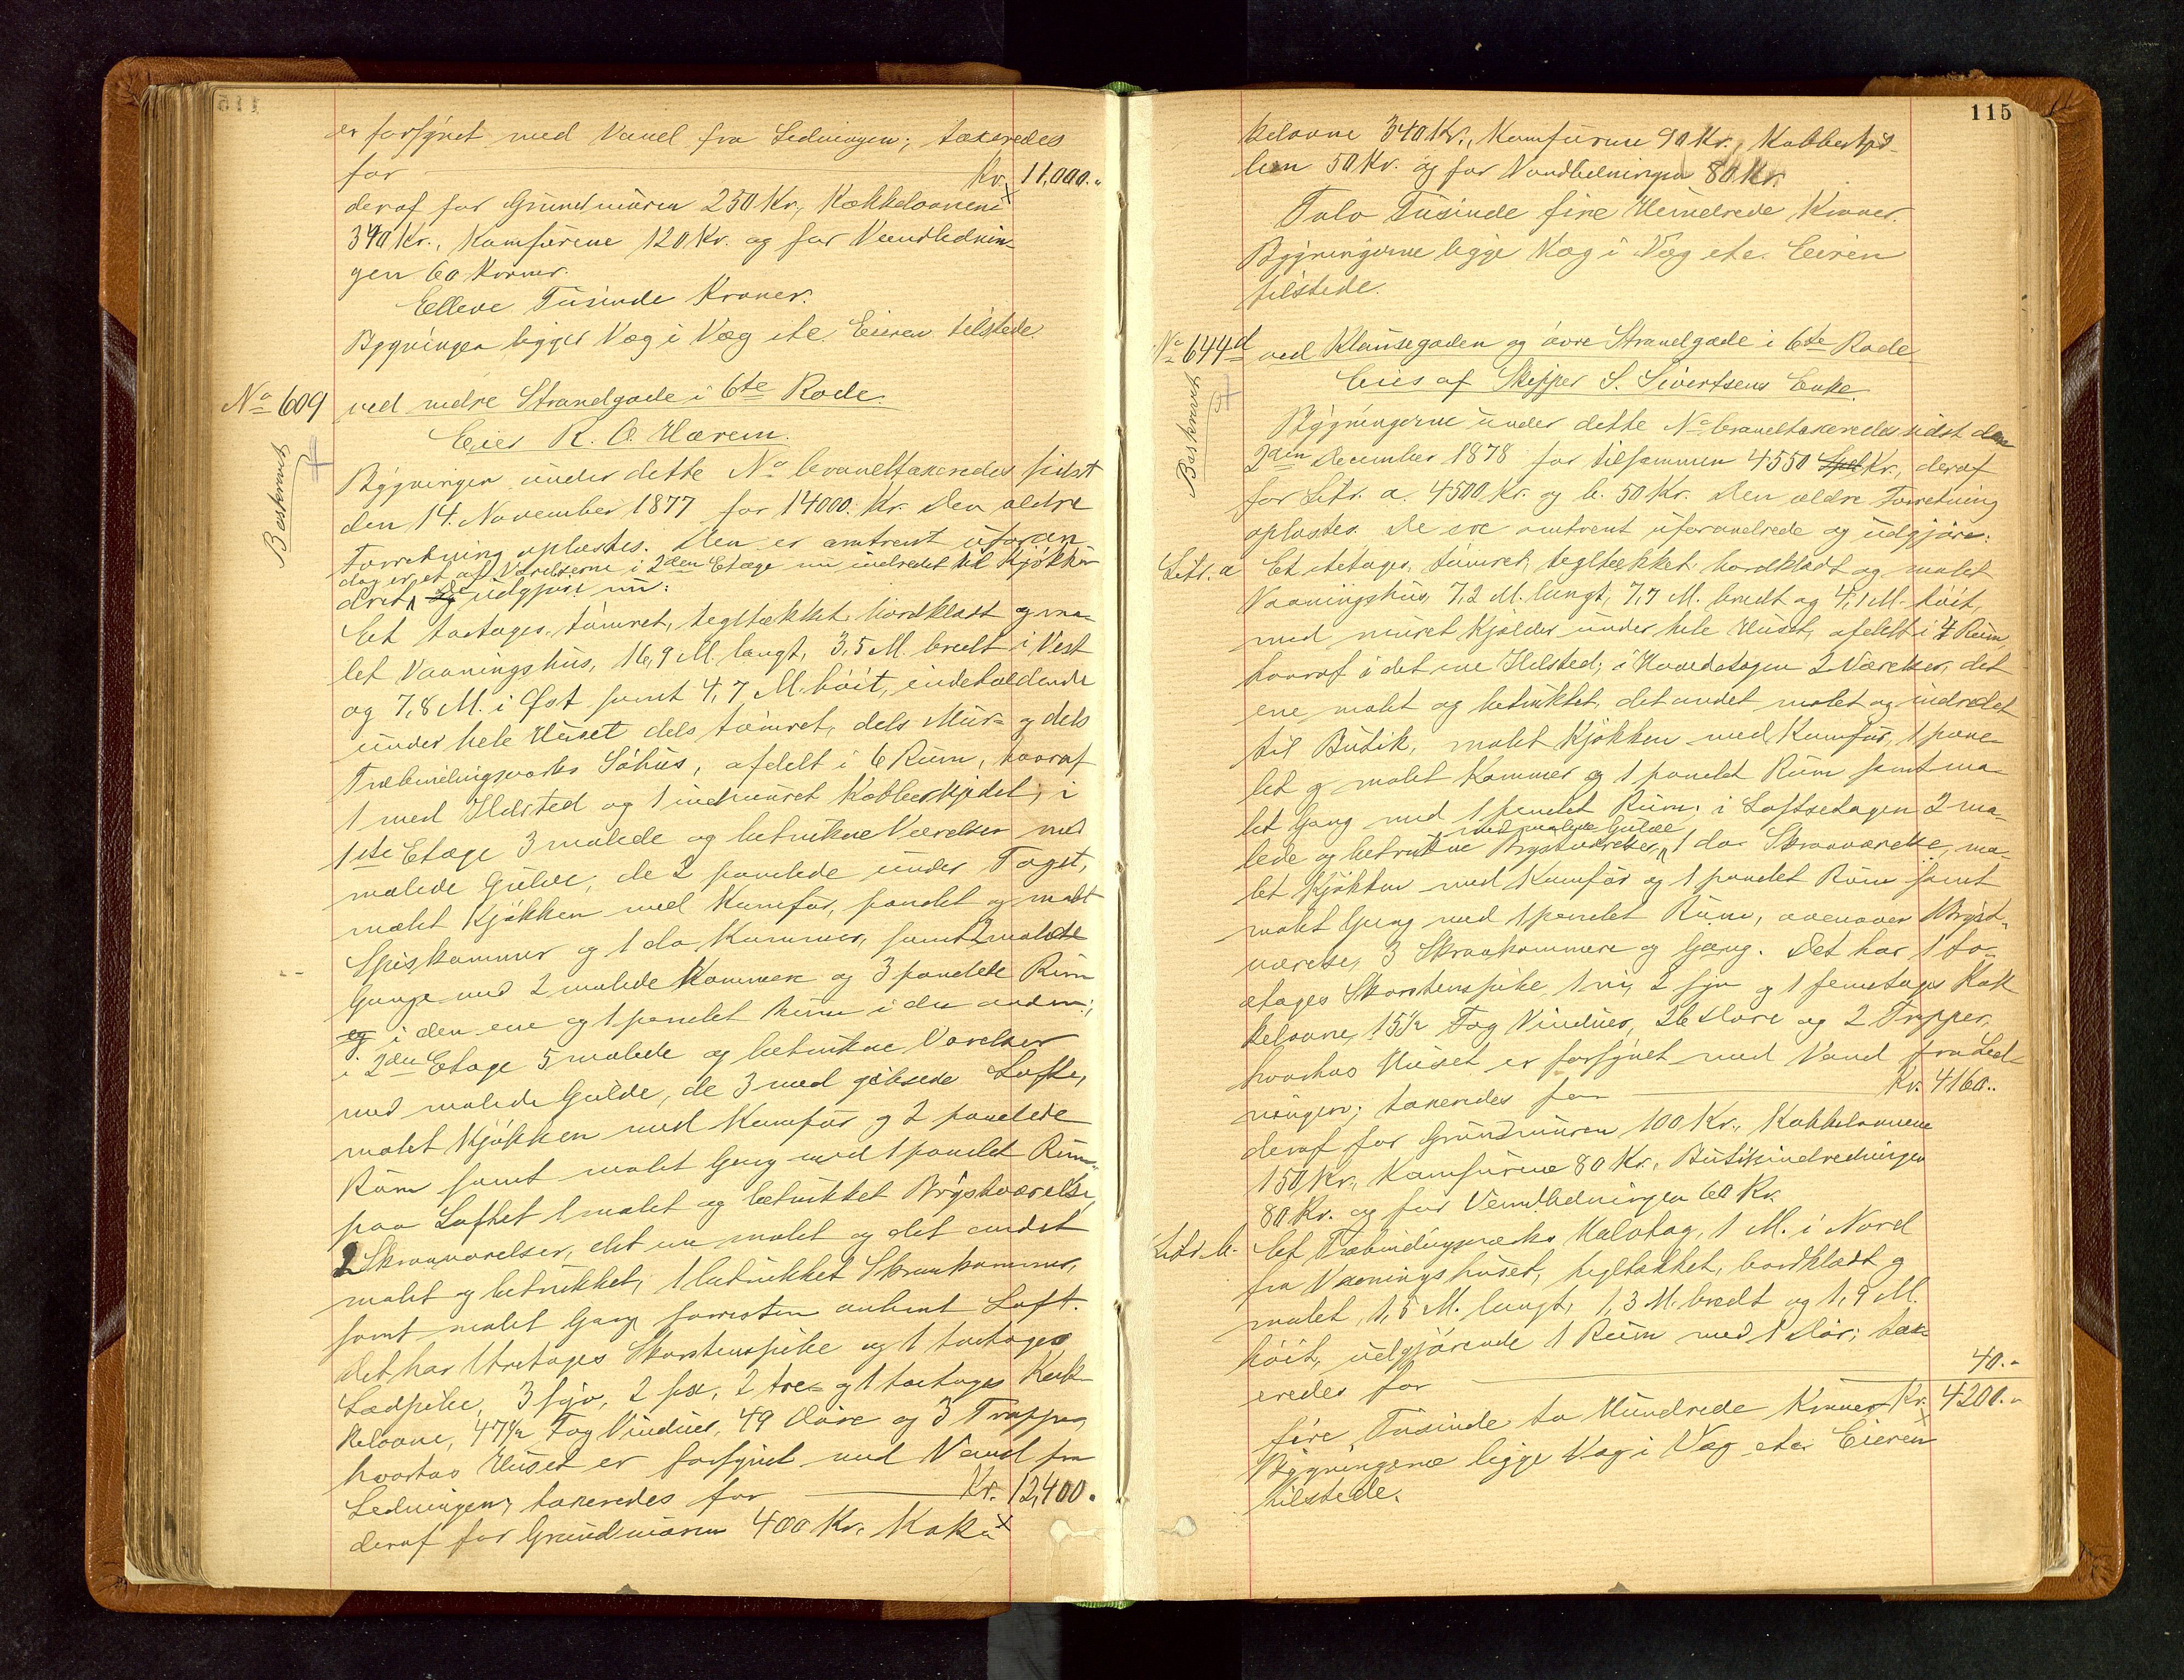 er forsynet med Vand fra Ledningen; taxeredes
for Kr. 11,000.„
deraf for Grundmuren 250 Kr., Kakkelovnene
340 Kr., Komfurene 120 Kr. og for Vandlednin-
gen 60 Kroner.
Elleve Tusinde Kroner.
Bygningen ligger Væg i Væg etc. Eieren tilstede.
No 609 ved nedre Strandgade i 6te Rode.
Eier R. O. Hærem.
Beskrevet
Bygningen under dette No brandtaxeredes sidst
den 14. November 1877 for 14000. Kr. Den ældre
Forretning oplæstes. Den er omtrent uforan
dog er et af Værelserne i 2den Etage nu indredet til Kjøkken
dret, udgjør nu:
Et toetages tømret, tegltækket bordklædt og ma-
let Vaaningshus, 16,9 M. langt, 3,5 M. bredt i Vest
og 7,8 M. i Øst samt 4,7 M. høit, indeholdende
under hele Huset dels tømret, dels Mur- og dels
Træbindingsværks Søhus, afdelt i 6 Rum, hvoraf
1 med Ildsted og 1 indmuret Kobberkjedel; i
1ste Etage 3 malede og betrukne Værelser med
malede Gulve, de 2 panelede under Taget,
malet Kjøkken med Komfur, panelet og malet
Spiskammer og 1 do. Kammer, samt 2 malede
Gange med 2 malede Kammere og 3 panelede Rum
og i den ene og 1 panelet Rum i den anden;
i 2den Etage 5 malede og betrukne Værelser
med malede Gulve, de 3 med gibsede Lofte,
malet Kjøkken med Komfur og 2 panelede
Rum samt malet Gang med 1 panelet Rum,
paa Loftet 1 malet og betrukket Brystværelse,
2 Skraaværelser, det ene malet og det andet
malet og betrukket, 1 betrukket Skraakammer,
samt malet Gang forresten aabent Loft.
Det har 1 tretages Skorstenspibe og 1 toetages
Ladpibe, 3 syv, 2 sex, 2 tre- og 1 toetages Kak-
kelovne, 47½ Fag Vinduer, 49 Døre og 3 Trapper,
hvorhos Huset er forsynet med Vand fra
Ledningen; taxeredes for Kr. 12,400.
deraf for Grundmuren 400 Kr. Kak
115
kelovne 340 Kr., Komfurene 90 Kr., Kobberkjed-
len 50 Kr. og for Vandledningen 80 Kr.
Tolv Tusinde fire Hundrede Kroner.
Bygningerne ligge Væg i Væg etc. Eieren
tilstede.
No 644d ved Klausegaden og øvre Strandgade i 6te Rode
Eies af Skipper S. Sivertsens Enke.
Beskrevet
Bygningerne under dette No brandtaxeredes sidst den
2den December 1878 for tilsammen 4550 Spd Kr., deraf
for Litr. a. 4500 Kr. og b. 50 Kr. Den ældre Forretning
oplæstes. De ere omtrent uforandrede og udgjøre:
Litr. a Et etetages tømret, tegltækket bordklædt og malet
Vaaningshus, 7,2 M. langt, 7,7 M. bredt og 4,1 M. høit,
med muret Kjælder under hele Huset, afdelt i 4 Rum,
hvoraf i det ene Ildsted; i Hovedetagen 2 Værelser, det
ene malet og betrukket, det andet malet og indredet
til Butik, malet Kjøkken med Komfur, 1 pane-
let og malet Kammer og 1 panelet Rum samt ma-
let Gang med 1 panelet Rum; i Loftsetagen 2 ma-
med malede Gulve
lede og betrukne Brystværelser, 1 do. Skraaværelse, ma-
let Kjøkken med Komfur og 1 panelet Rum samt
malet Gang med 1 panelet Rum, ovenover 1 Bryst-
værelse, 3 Skraakammere og Gang. Det har 1 to-
etages Skorstenspibe, 1 ni, 2 syv og 1 femetages Kak
kelovne, 15½ Fag Vinduer, 26 Døre og 2 Trapper,
hvorhos Huset er forsynet med Vand fra Led-
ningen; taxeredes for Kr. 4160..
deraf for Grundmuren 100 Kr., Kakkelovnene
150 Kr., Komfurene 80 Kr., Butikindredningen
80 Kr. og for Vandledningen 60 Kr.
Litr. b. Et Træbindingsværks Halvtag, 1 M. i Nord
fra Vaaningshuset, tegltækket, bordklædt og
malet, 1,5 M. langt, 1,3 M. bredt og 1,9 M.
høit, udgjørende 1 Rum med 1 Dør; tax-
eredes for 40.„
fire Tusinde to Hundrede Kroner Kr. 4200.„
Bygningerne ligge Væg i Væg etc. Eieren
tilstede.